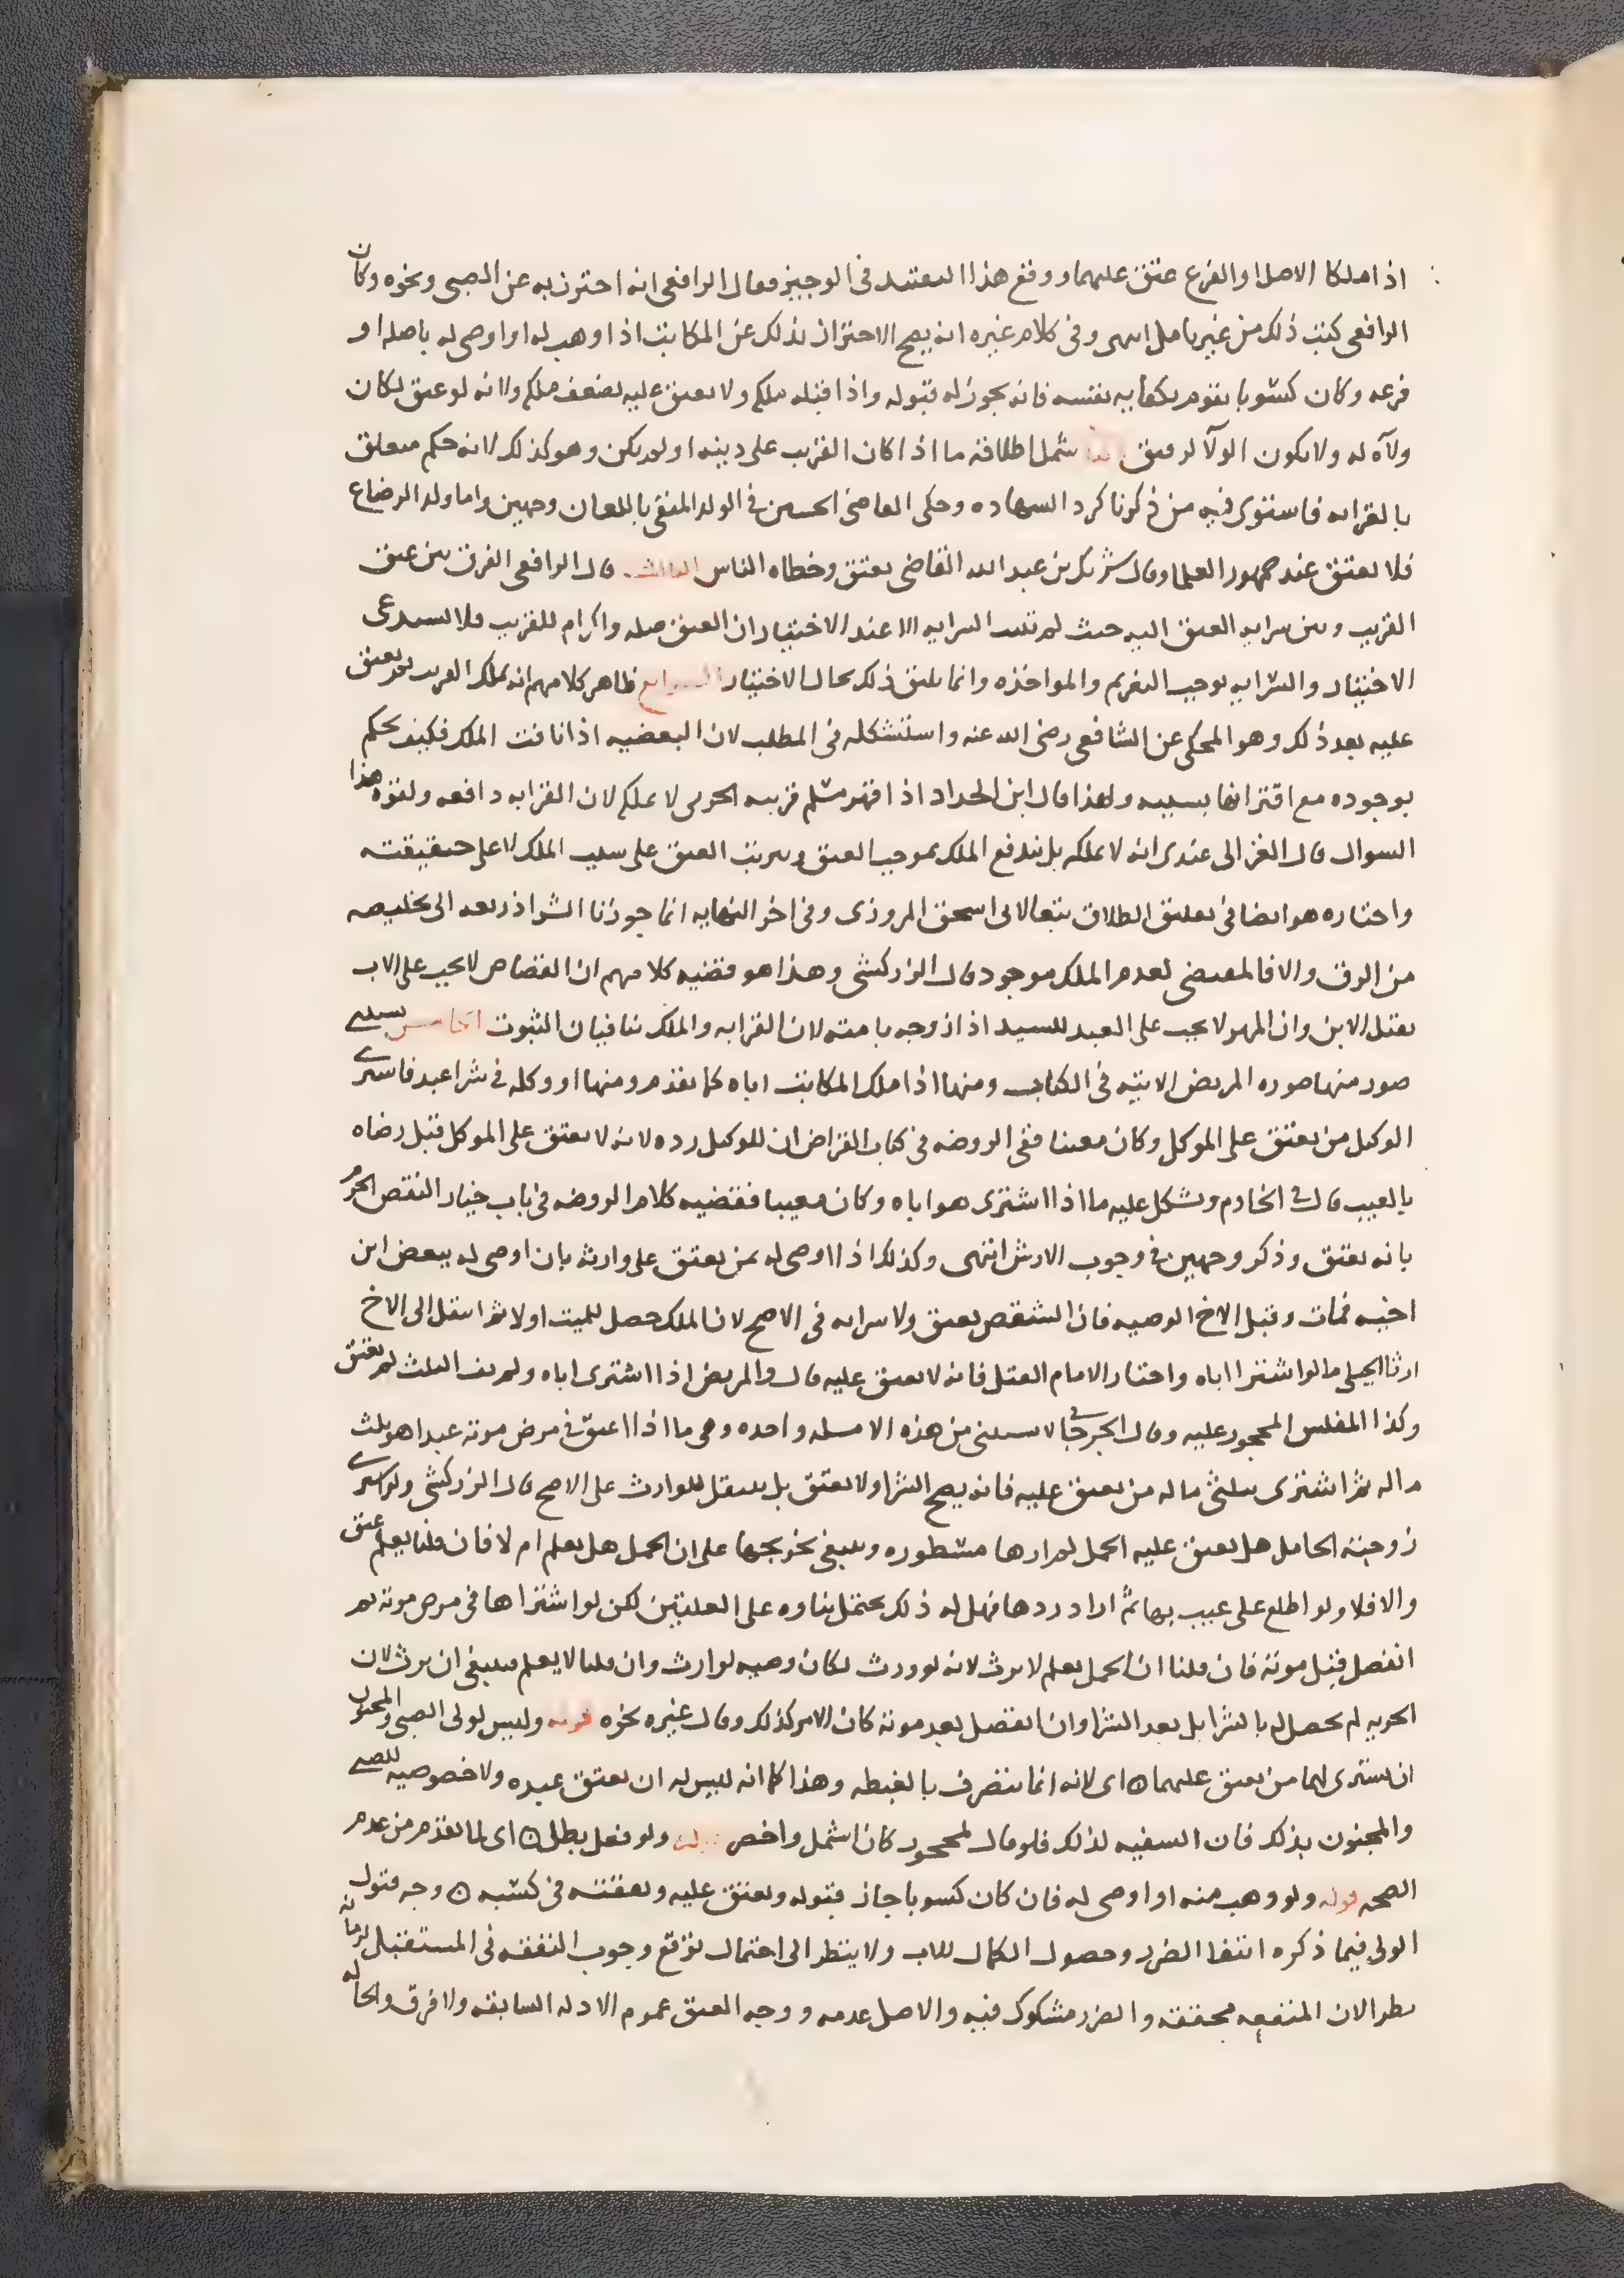 اذا ملكا الاصل او الفرع عتق عليهما ووقع هذا التقييد في الوجيز فقال الرافعي انه احترز به عن الصبي ونحوه وكان
الرافعي كتب ذلك من غير تامل انتهى وفي كلام غيره انه يصح الاحتراز بذلك عن المكاتب اذا وهب له او اوصي له باصله او
فرعه وكان كسوبا يقوم بكفايه نفسه فانه يجوز له قبوله واذا قبله ملكه ولا يعتق عليه لضعف ملكه ولانه لو عتق لكان
ولاه له ولا يكون الولا لرقيق شمل اطلاقه ما اذا كان القريب على دينه او لم يكن وهو كذلك لانه حكم متعلق
بالقرابه فاستوى فيه من ذكرنا كرد الشهاده وحكى القاضي الحسين في الولد المنفي باللعان وجهين واما ولد الرضاع
فلا يعتق عند جمهور العلما وقال شريك بن عبد الله القاضي يعتق وخطاه الناس الثالث قال الرافعي الفرق بين عتق
القريب وبين سرايه العتق اليه حيث لم تثبت السرايه الا عند الاختيار ان العتق صله واكرام للقريب فلا يستدعي
الاختيار والسرايه توجب التغريم والمواخذه وانما يليق ذلك بحال الاختيار الرابع ظاهر كلامهم انه يملك القريب ثم يعتق
عليه بعد ذلك وهو المحكي عن الشافعي رضي الله عنه واستشكله في المطلب لان البعضيه اذا نافت الملك فكيف يحكم
بوجوده مع اقترانها بسببه ولهذا قال ابن الحداد اذا قهر مسلم قريبه الحربي لا يملكه لان القرابه دافعه ولقوه هذا
السوال قال الغزالي عندي انه لا يملكه بل يندفع الملك بموجب العتق وترتب العتق على سبب الملك لا على حقيقته
واختاره هو ايضا في تعليق الطلاق تبعا لابي اسحق المروزي وفي اخر النهايه انما جوزنا الشرا ذريعه الى تخليصه
من الرق والا فالمقتضى لعدم الملك موجود قال الزركشي وهذا هو قضيه كلامهم ان القصاص لا يجب على الاب
بقتل الابن وان المهر لا يجب على العبد للسيد اذا زوجه بامته لان القرابه والملك تنافيان الثبوت الخامس يستثنى
صور منها صوره المريض الاتيه في الكتاب ومنها اذا ملك المكاتب اباه كما تقدم ومنها او وكله في شرا عبد فاشترى
الوكيل من يعتق على الموكل وكان معيبا ففي الروضه في كتاب القراض ان للوكيل رده لانه لا يعتق على الموكل قبل رضاه
بالعيب قال في الخادم ويشكل عليه ما اذا اشترى هو اباه وكان معيبا فقضيه كلام الروضه في باب خيار النقص الجزم
بانه يعتق وذكر وجهين في وجوب الارش انتهى وكذلك اذا اوصي له بمن يعتق على وارثه بان اوصى له ببعض ابن
اخيه فمات وقبل الاخ الوصيه فان الشقص يعتق ولا سرايه في الاصح لان الملك حصل للميت اولا ثم انتقل الى الاخ
ارثا الجيلي ما لو اشترا اباه واختار الامام العتل فانه لا يعتق عليه قال والمريض اذا اشترى اباه ولم يف الثلث لم يعتق
وكذا المفلس المحجور عليه وقال الجرجاني لا يستثنى من هذه الا مسله واحده وهي ما اذا اعتق في مرض موته عبدا هو ثلث
ماله ثم اشترى بثلثي ماله من يعتق عليه فانه يصح الشرا ولا يعتق بل ينتقل للوارث على الاصح قال الزركشي ولو اشترى
زوجته الحامل هل يعتق عليه الحمل لم ارها مسطوره وينبغي تخريجها على ان الحمل هل يعلم ام لا فان قلنا يعلم عتق
والا فلا ولو اطلع على عيب بها ثم اراد ردها فهل له ذلك يحتمل بناوه على العلتين لكن لو اشتراها في مرض موته ثم
انفصل قبل موته فان قلنا ان الحمل يعلم لا يرث لانه لو ورث لكان وصيه لوارث وان قلنا لا يعلم فينبغي ان يرث لان
الحريه لم تحصل له بالشرا بل بعد الشرا وان انفصل بعد موته كان الامر كذلك وقال غيره نحوه قوله وليس لولي الصبي والمجنون
ان يشتري لهما من يعتق عليهما ۞ اي لانه انما يتصرف بالغبطه وهذا كما انه ليس له ان يعتق عبده ولا خصوصيه للصبي
والمجنون بذلك فان السفيه لذلك فلو قال لمحجور كان اشمل واخص قوله ولو فعل بطل ۞ اي لما تقدم من عدم
الصحه قوله ولو وهب منه او اوصي له فان كان كسوبا جاز قبوله ويعتق عليه ونفقته في كسبه ۞ وجه قبول
الولي فيما ذكره انتفا الضرر وحصول الكمال للاب ولا ينظر الى احتمال توقع وجوب النفقه في المستقبل لزمانه
تطرا لان المنفعه محققه والضرر مشكوك فيه والاصل عدمه ووجه العتق عموم الادله السابقه ولا فرق والحاله